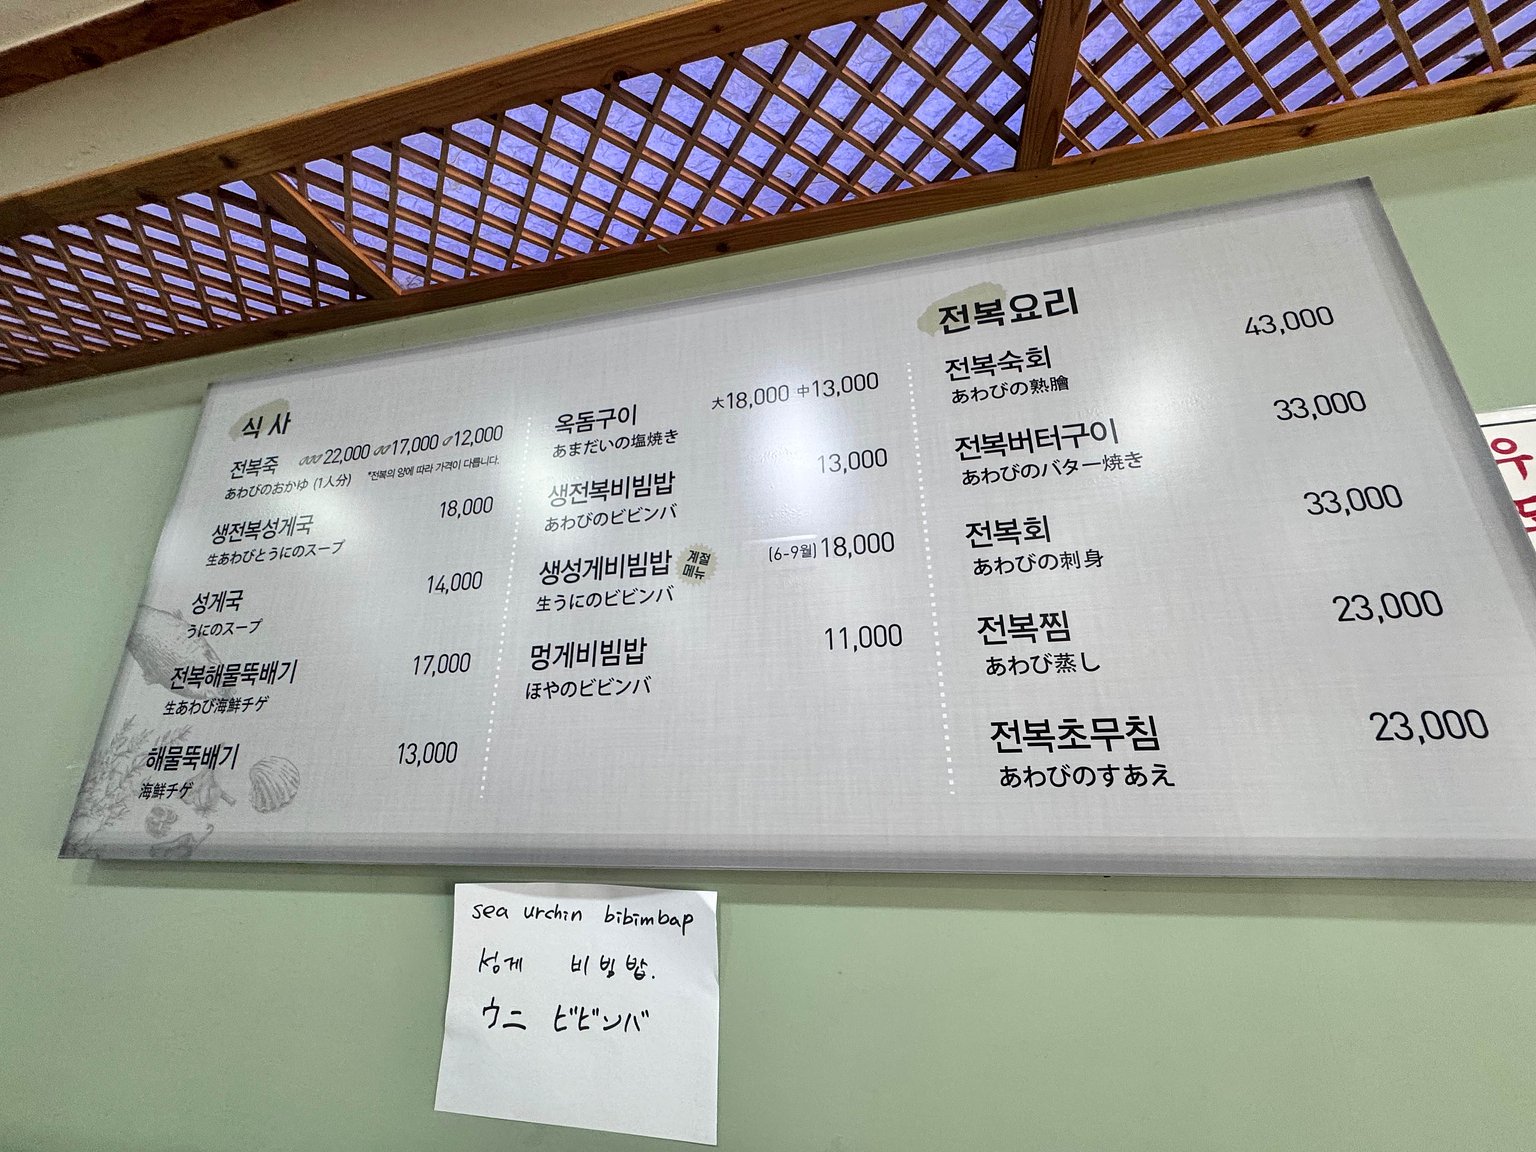 식사
전복죽 22,000 17,000 12,000
あわびのおかゆ (1人分) *전복의 양에 따라 가격이 다릅니다.
생전복성게국 18,000
生あわびとうにのスープ
성게국 14,000
うにのスープ
전복해물뚝배기 17,000
生あわび海鮮チゲ
해물뚝배기 13,000
海鮮チゲ
옥돔구이 大18,000 中13,000
あまだいの塩焼き
생전복비빔밥 13,000
あわびのビビンバ
생성게비빔밥 계절메뉴 (6-9월)18,000
生うにのビビンバ
멍게비빔밥 11,000
ほやのビビンバ
전복요리
전복숙회 43,000
あわびの熟膾
전복버터구이 33,000
あわびのバター焼き
전복회 33,000
あわびの刺身
전복찜 23,000
あわび蒸し
전복초무침 23,000
あわびのすあえ
우
sea urchin bibimbap
성게 비빔밥.
ウニ ビビンバ